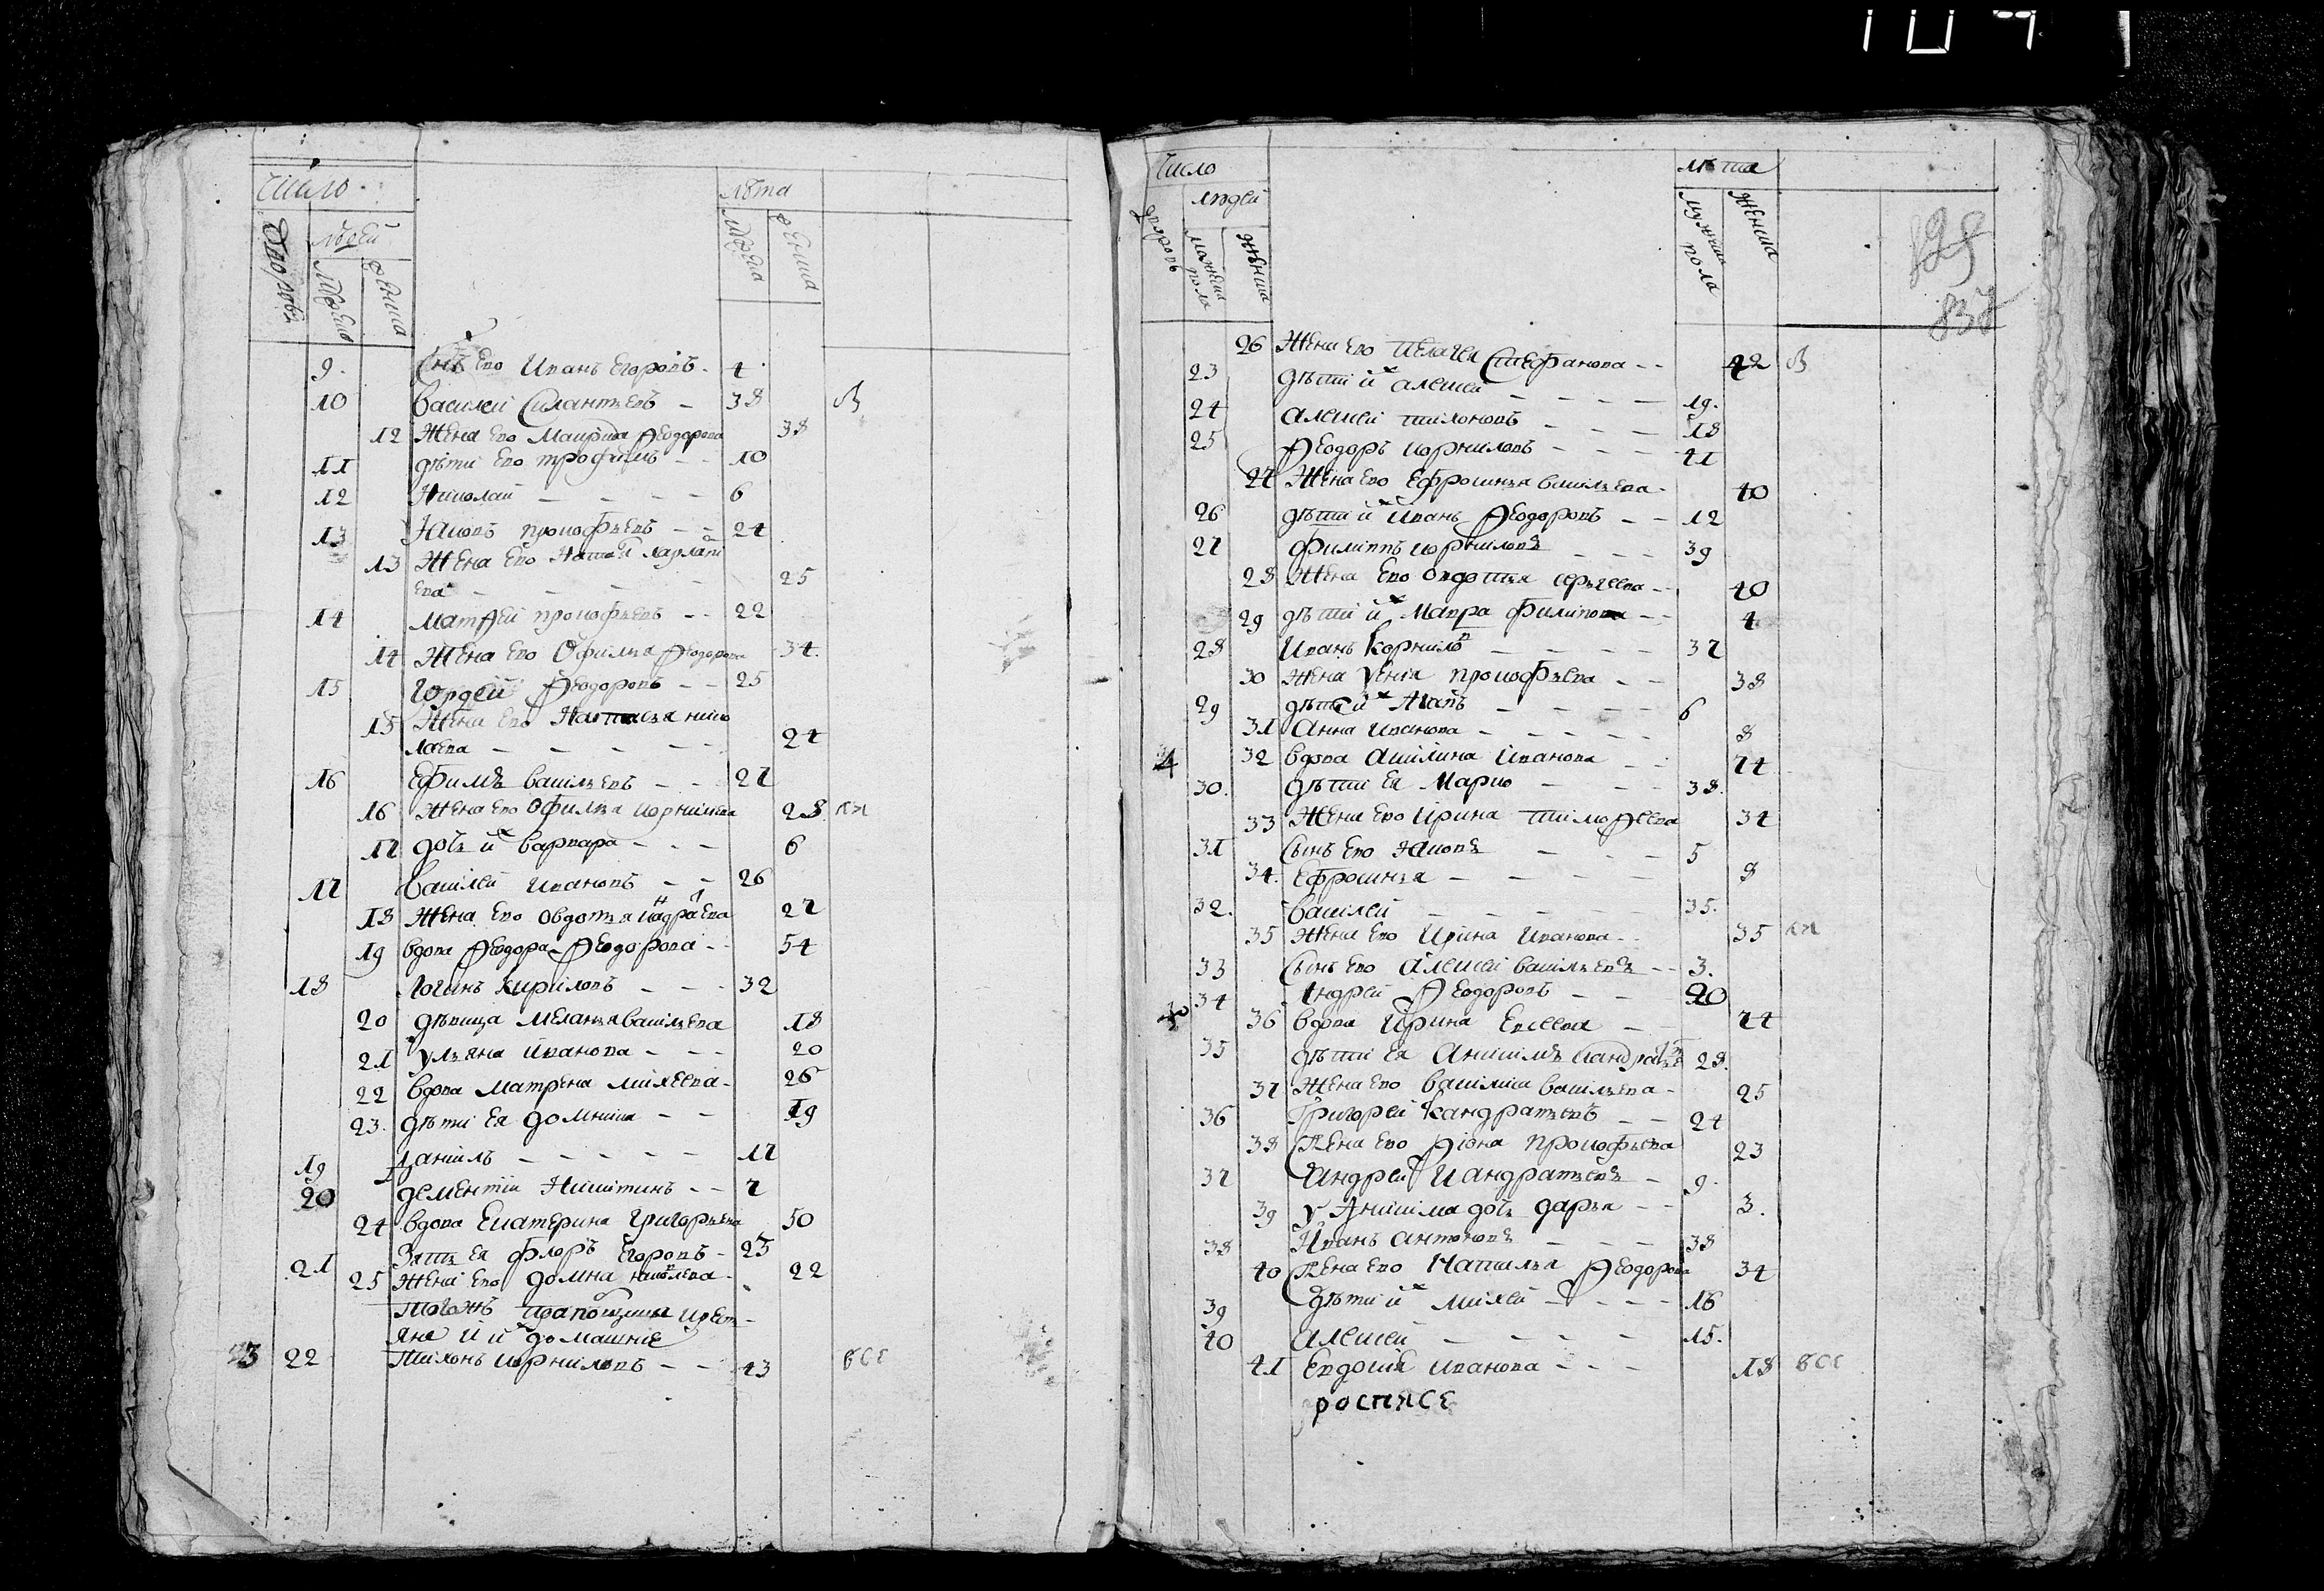 Число
людей
лѣта
дворовъ
мужеска
женска
мужеска
женска
9. Снъ Ево Иванъ Егоровъ. 4
10 Василей Силантьевъ 38
12 Жена Ево Маврида Ѳеодорова 38
11 дѣти Ево трофимъ 10
12 Николай 6
13 Яковъ прокофьевъ 24
13 Жена Ево
Ева 25
14 Матѳей прокофьевъ 22
14 Жена Ево Офимья Ѳеодорова 34.
15 Гордей Ѳеодоровъ 25
15 Жена Ево Настасья нико
лаева 24
16 Ефимъ васильевъ 27
16 Жена Ево Офимья корнилева 28
17 дочь их варвара 6
17 василей ивановъ 26
18 Жена Ево овдотья 27
19 вдова Ѳеодора Ѳеодорова 54
18 Логинъ Кириловъ 32
20 дѣвица Меланья васильева 18
21 ульяна иванова 20
22 вдова матрена михеева 26
23. дѣти Ея домника 19
19 данилъ 17
20 дементій Никитинъ 7
24 вдова Екатерина Григорьева 50
21 Зять Ея флоръ Егоровъ 23
25 Жена Ево домна николева 22
Тогожъ крест
яне и их домашніе
3 22 Тихонъ корниловъ 43 все
109
Число
людей
лѣта
дворовъ
мужеска пола
женска
мужеска пола
женска
829
837
26 Жена Ево Пелагея Стефанова 42
23 дѣти их алексей 19.
24 алексей тихоновъ 18
25 Ѳеодоръ корниловъ 41
27 Жена Ево Ефросинья васильева 40
26 дѣти их Иванъ Ѳеодоровъ 12
27 филиппъ корниловъ 39
28 Жена Ево овдотья сергеева 40
29 дѣти их Мавра филипова 4
28 Иванъ Корниловъ 37
30 Жена прокофьева 38
29 дѣти их 6
31 Анна иванова 8
4 32 вдова Акилина Иванова 74
30. дѣти Ея Марко 38.
33 Жена Ево Ирина тимоѳеева 34
31 Сынъ Ево Яковъ 5
34. Ефросинья 8
32. василей 35.
35 Жена Ево Ирина Иванова 35
33 Сынъ Ево алексей васильевъ 3.
34 Андрей Ѳеодоровъ 20
36 вдова Ирина Евсеева 74
35 дѣти Ея Анисимъ кандратьевъ 28.
37 Жена Ево василиса васильева 25
36 Григорей Кандратьевъ 24
38 Жена Ево прокофьева 23
37 Андрей Кандратьевъ 9.
39 у Анисима дочь дарья 3.
38 Иванъ антоновъ 38
40 Жена Ево Наталья Ѳеодорова 34
39 дѣти их михей 16
40 алексей 15.
41 Евдокія иванова 18 все
росписе